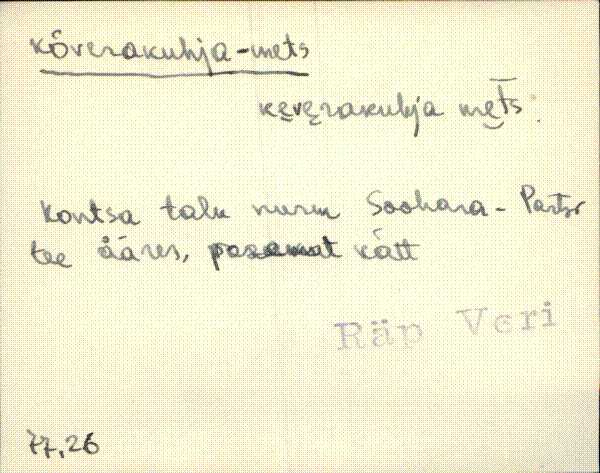 kõverakuhja-mets
kęvęrakuhja mętˉs.
Kontsa talu nurm Soohara-Partsi
tee ääres, pasemat kätt
Räp Veri
77,26